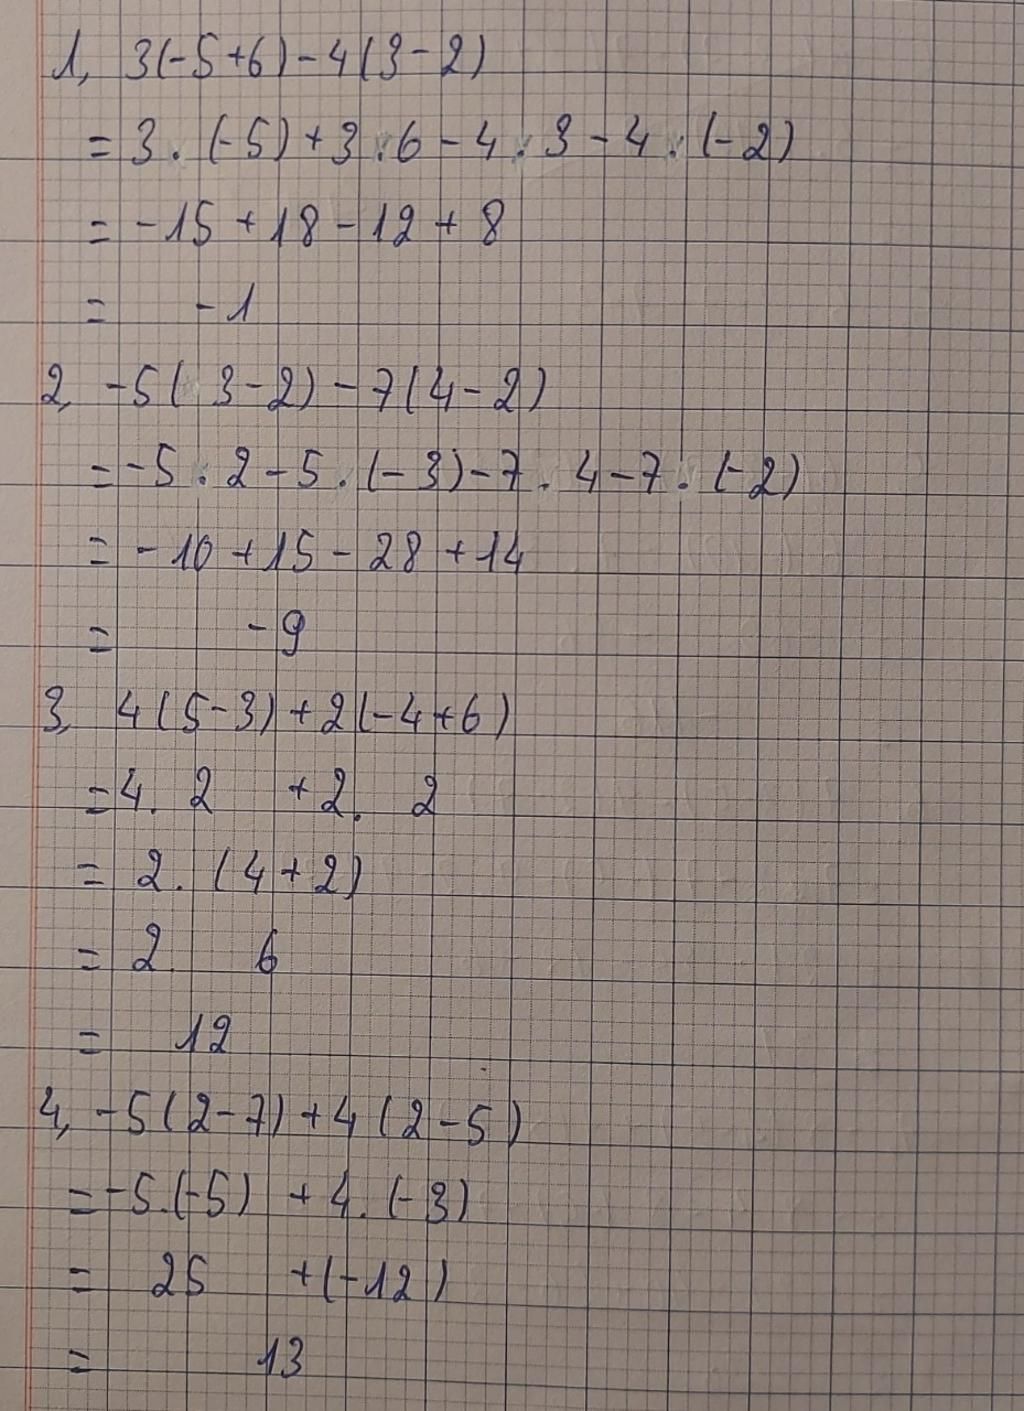 1, 3(-5+6)-4(3-2)
= 3. (-5)+3.6-4.3-4.(-2)
= -15+18-12+8
= -1
2, -5( 3-2)-7(4-2)
= -5.2-5.(-3)-7.4-7.(-2)
= -10+15-28+14
= -9
3, 4(5-3)+2(-4+6)
=4. 2 +2. 2
= 2. (4+2)
= 2. 6
= 12
4, -5(2-7)+4(2-5)
= -5.(-5) +4.(-3)
= 25 +(-12)
= 13